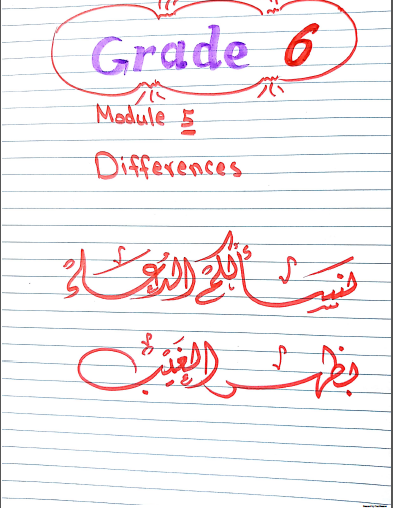 Grade 6
Module 5
Differences
نسألكم الدُعاء
بظهر الغَيب